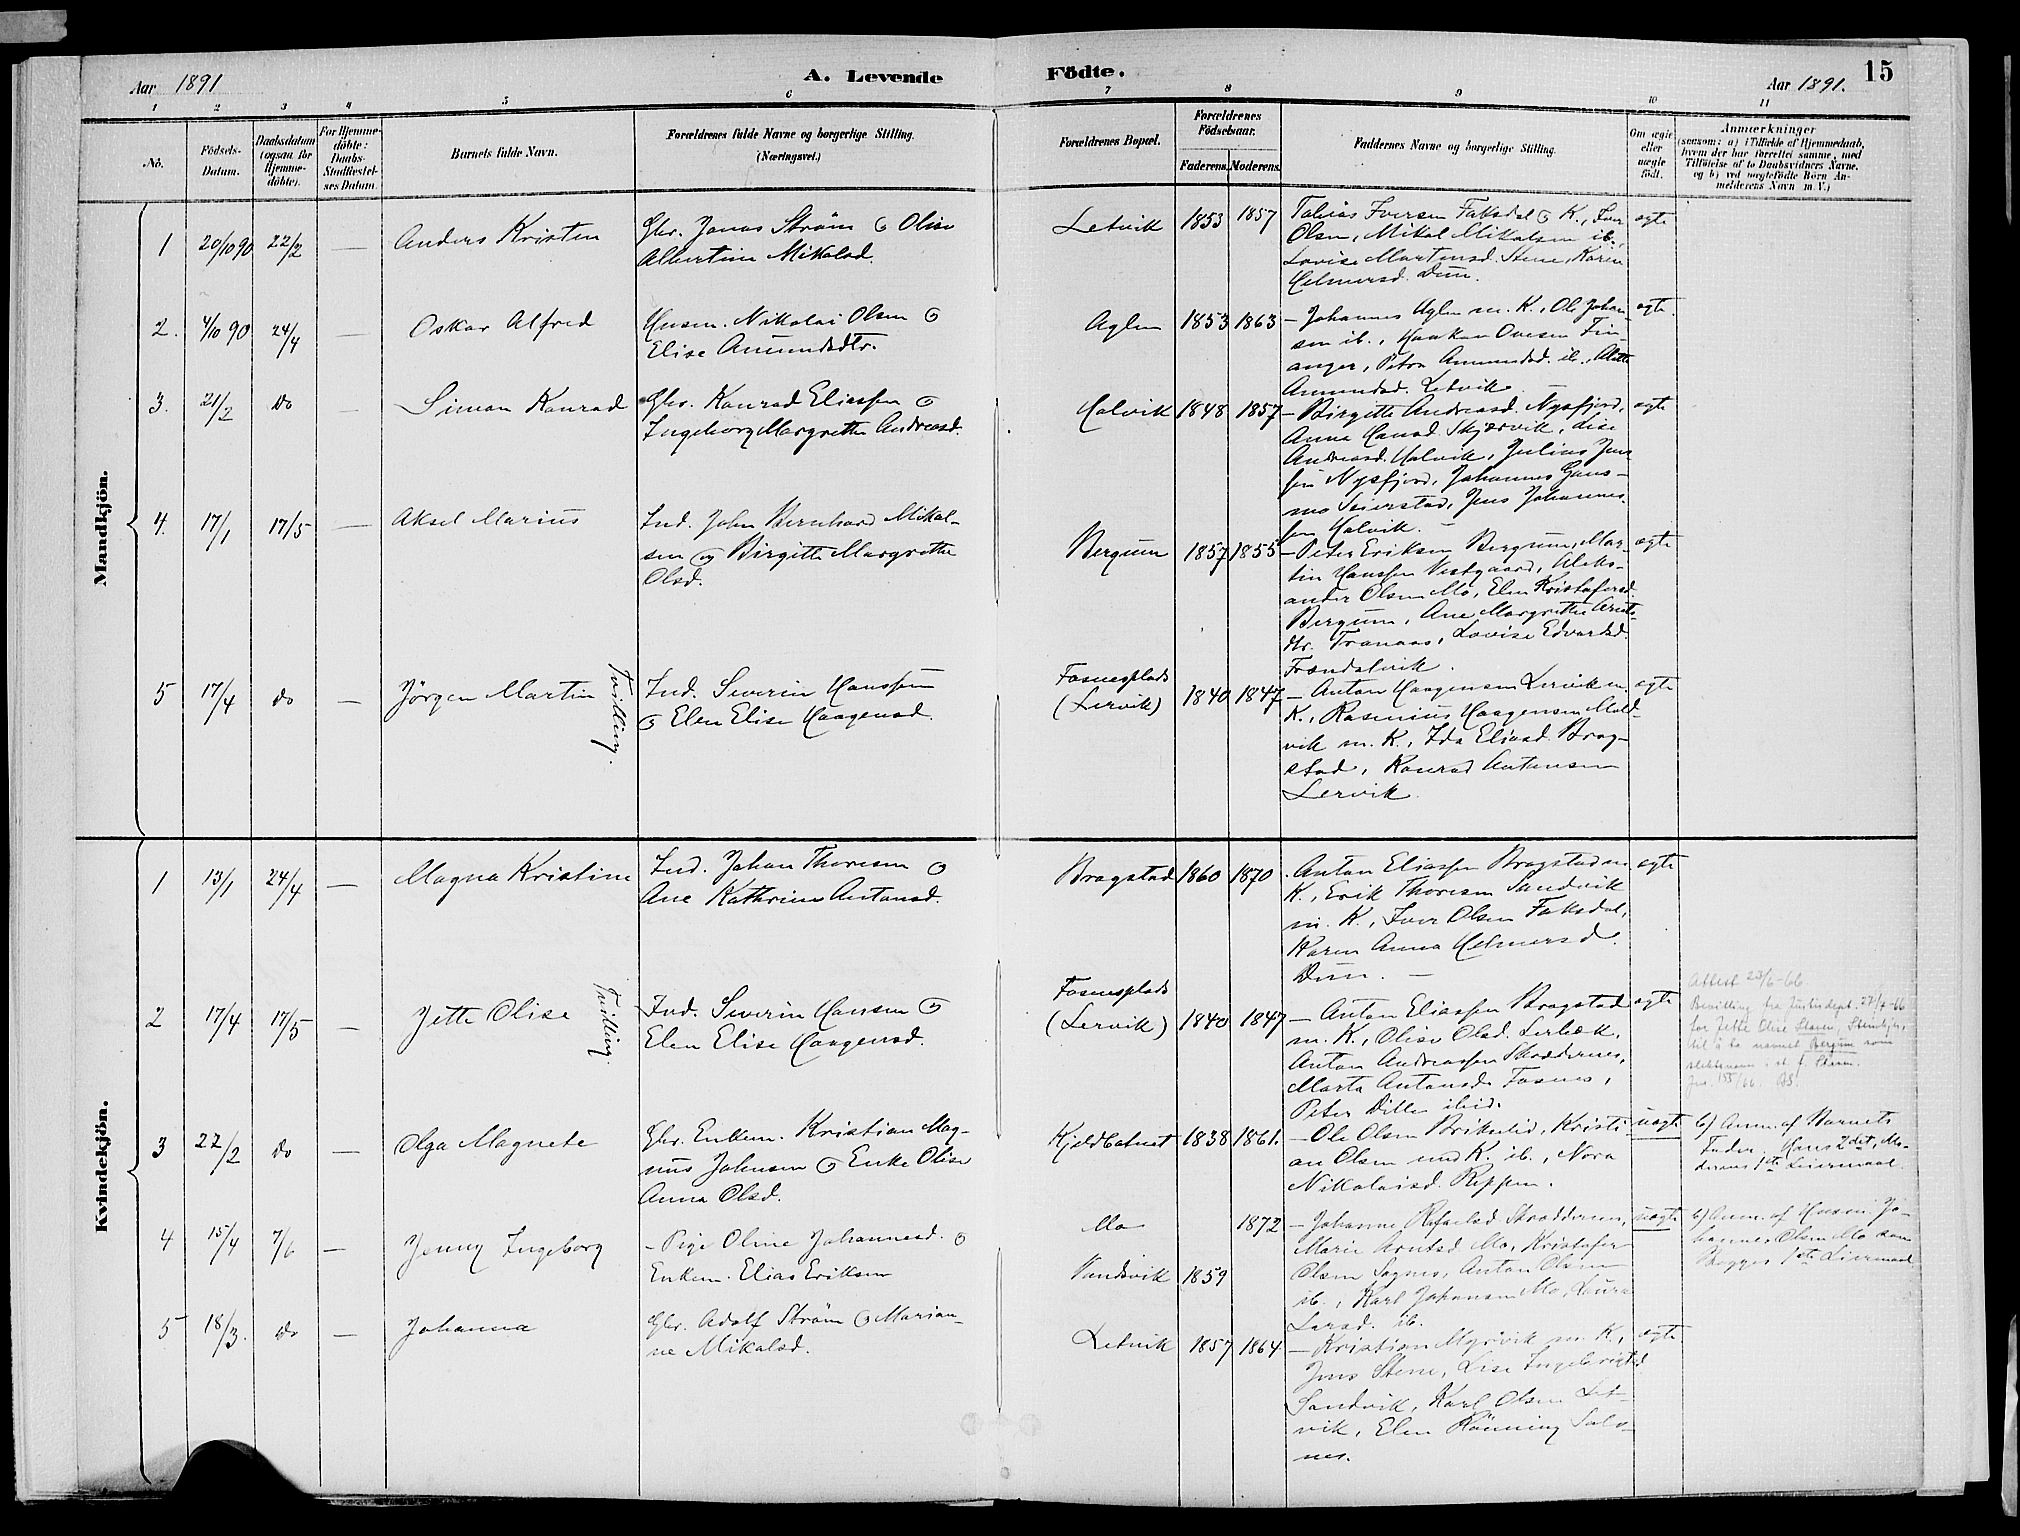 Aar 1891
A. Levende
Födte.
Aar 1891.
15
1 2 3 4 5 6 7 8 9 10 11
No.
Födsels-
Datum.
Daabsdatum
(ogsaa for
Hjemme-
döbte).
For Hjemme-
döbte:
Daabs-
Stadfæstel-
ses Datum.
Barnets fulde Navn.
Forældrenes fulde Navne og borgerlige Stilling.
(Næringsvei.)
Forældrenes Bopæl.
Forældrenes
Födselsaar.
Faderens. Moderens.
Faddernes Navne og borgerlige Stilling.
Om ægte
eller
uægte
födt.
Anmærkninger
(saasom: a) i Tilfælde af Hjemmedaab,
hvem der har forrettet samme, med
Tilföielse af to Daabsvidners Navne,
og b) ved uægtefödte Börn An-
melderens Navn m. V.)
Mandkjön.
1 20/10 90 22/2 — Anders Kristen
Gbr. Jonas Ström og Oline
Albertine Mikalsd.
Letvik 1853 1857
Tobias Iversen Faksdal og K., Iver
Olsen, Mikal Mikalsen ib.,
Lovise Martensd. Stene, Karen
Helmersd. Dun.
ægte
2. 4/10 90 24/4 — Oskar Alfred
Husm. Nikolai Olsen og
Elise Amundsdtr.
Aglen 1853 1863
— Johannes Aglen m. K., Ole Johan-
sen ib., Haakon Ovesen Fin-
anger, Petra Amundsd. ib.,
Amundsd. Letvik.
ægte
3. 21/2 do — Simon Konrad
Gbr. Konrad Eliassen og
Ingeborg Margrethe Andreasd.
Halvik 1848 1857
— Birgitte Andreasd. Nysfjord,
Anna Hansd. Skjærvik, Lise
Andreasd. Halvik, Julius Jens-
sen Nysfjord, Johannes Hans-
mo Seierstad, Jens Johannes-
sen Halvik.
ægte
4. 17/1 17/5 — Aksel Marius
Ind. John Bernhard Mikal-
sen og Birgitte Margrethe
Olsd.
Bergum 1857 1855
— Peter Eriksen Bergum, Mar-
tin Hanssen Vestgaard, Aleks-
ander Olsen Mo, Elen Kristofersd.
Bergum, Ane Margrethe Arnts-
dtr. Tranaas, Lovise Edvardsd.
Frændalvik.
ægte
5 17/4 do — Jörgen Martin
Tvilling.
Ind. Severin Hanssen
og Elen Elise Haagensd.
Fosnesplads
(Lervik) 1840 1847
— Anton Haagensen Lervik m.
K., Rasmus Haagensen Mold-
vik m. K., Ida Eliasd. Brag-
stad, Konrad Antonsen
Lervik.
ægte
Kvindekjön.
1 13/1 24/4 — Magna Kristine
Ind. Johan Thoresen og
Ane Kathrine Antonsd.
Bragstad 1860 1870
Anton Eliassen Bragstad m
K., Erik Thoresen Sandvik
m. K., Iver Olsen Faksdal,
Karen Anna Helmersd.
Dun. —
ægte
2 17/4 17/5 — Jette Olise
Tvilling.
Ind. Severin Hansen og
Elen Elise Haagensd.
Fosnesplads
(Lervik) 1840 1847
— Anton Eliassen Bragstad
m. K., Olise Olsd. Lerbæk,
Anton Andreassen Skrædernes,
Marta Antonsd. Fosnes,
Peter Dille ibid.
ægte
Attest 23/6-66
Bevilling fra Justisdept. 27/4-66
for Jette Olise Staren, Steinkjer,
til å ta navnet Bergum som
slektsnavn i st. f. Staren.
Jnr. 155/66.
3 22/2 do — Olga Magnete
Gbr. Enkem. Kristian Mag-
nus Johnsen og Enke Olise
Anna Olsd.
1838 1861.
— Ole Olsen Brikulid, Kristi-
an Olsen med K. ib., Nora
Nikolaisd. Reppen.
uægte
b) Anm. af Barnets
Fader. Hans 2det, Mo-
derens 1ste Leiermaal.
4 15/4 7/6 — Jenny Ingeborg
— Pige Oline Johannesd. og
Enkem. Elias Eriksen
Mo 1872
Vandsvik 1859
— Johanna Rafaelsd. Skræddernes,
Marie Arntsd. Mo, Kristofer
Olsen Sagnes, Anton Olsen
ib., Karl Johansen Mo, Laura
Larsd. ib.
uægte
b) Anm. af Husm. Jo-
hannes Olsen Mo som
Begges 1ste Leiermaal
5 18/3. do — Johanna
Gbr. Adolf Ström og Marian-
ne Mikalsd.
Letvik 1857 1864
— Kristian Myrvik m. K.,
Jens Stene, Lise Ingebrigtsd.
Sandvik, Karl Olsen Let-
vik, Elen Rönning Sals-
nes.
ægte